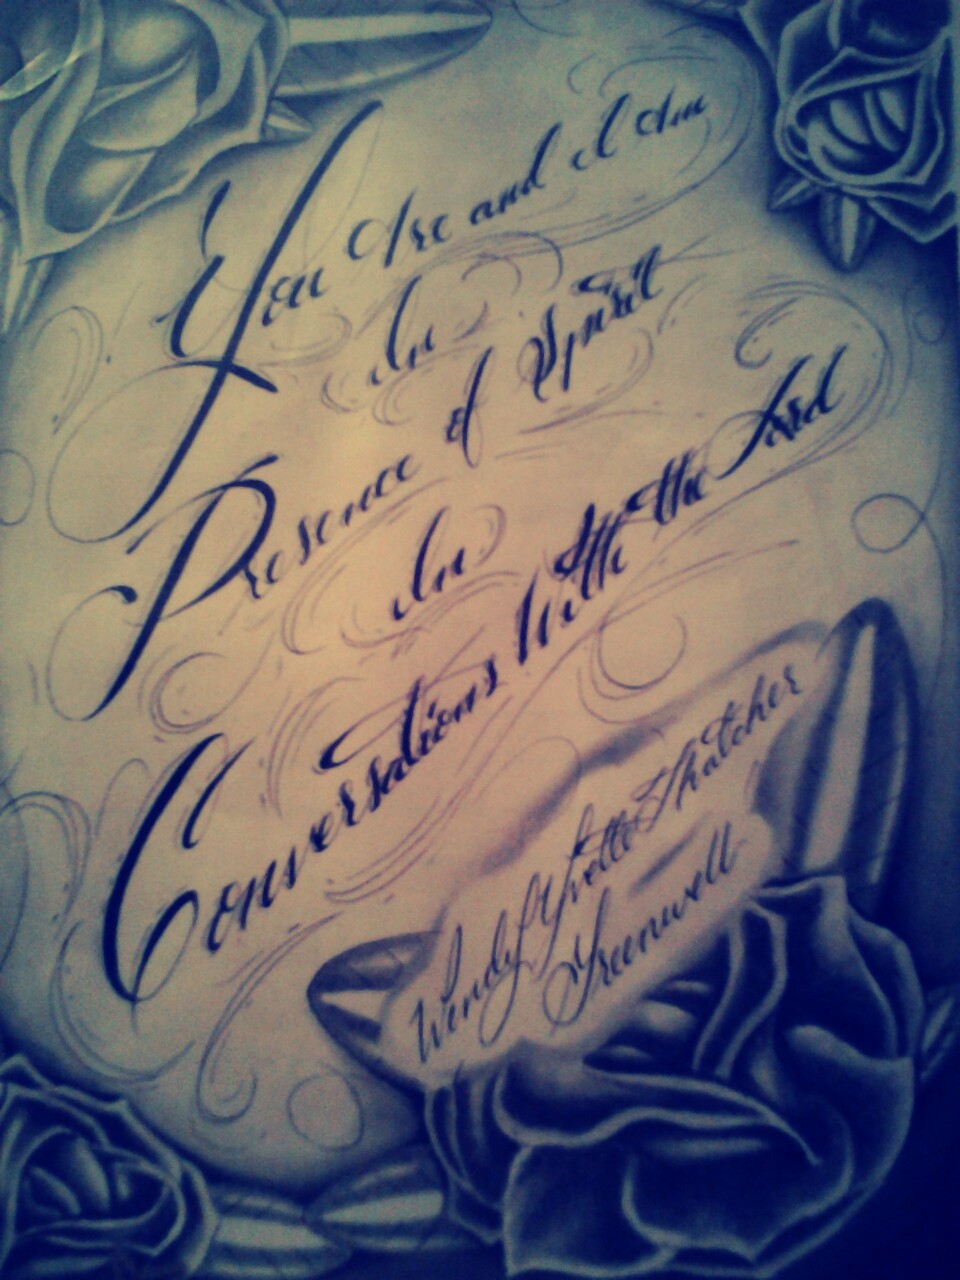 You Are and I Am
In
Presence of Spirit
In
Conversations With the Lord
Wendy Yvette Thatcher
Greenwell